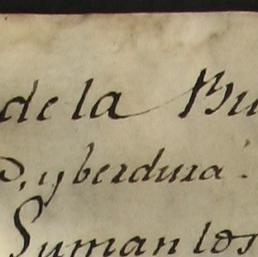 de la Bu
o, y berdura.
Suman los